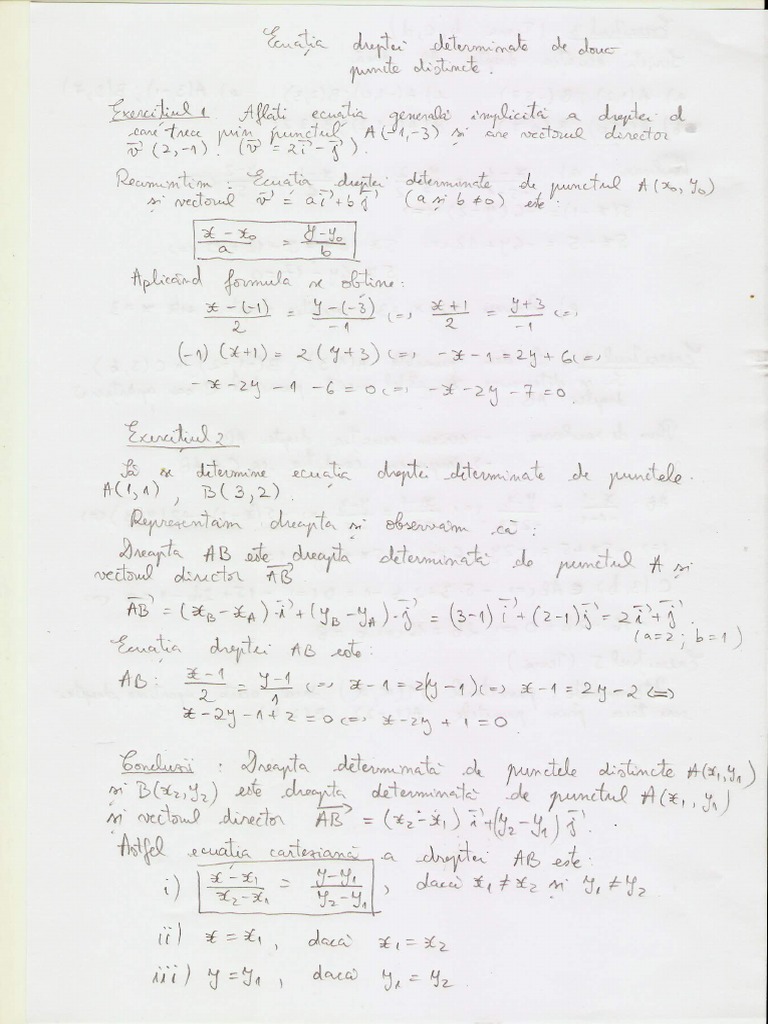 Ecuația dreptei determinate de două
puncte distincte.
Exercițiul 1 Aflați ecuația generală implicită a dreptei d
care trece prin punctul A(-1,-3) și are vectorul director
v⃗ (2,-1). (v⃗ = 2i⃗ - j⃗).
Reamintim: Ecuația dreptei determinate de punctul A(x₀, y₀)
și vectorul v⃗ = ai⃗ + bj⃗ (a și b ≠ 0) este:
(x - x₀)/a = (y - y₀)/b
Aplicând formula se obține:
(x-(-1))/2 = (y-(-3))/-1 <=> (x+1)/2 = (y+3)/-1 <=>
(-1)(x+1) = 2(y+3) <=> -x-1 = 2y+6 <=>
-x-2y-1-6=0 <=> -x-2y-7=0.
Exercițiul 2
Să se determine ecuația dreptei determinate de punctele
A(1,1), B(3,2).
Reprezentăm dreapta și observăm că:
Dreapta AB este dreapta determinată de punctul A și
vectorul director AB⃗
AB⃗ = (x_B - x_A)·i⃗ + (y_B - y_A)·j⃗ = (3-1)i⃗ + (2-1)j⃗ = 2i⃗ + j⃗.
(a=2; b=1)
Ecuația dreptei AB este:
AB: (x-1)/2 = (y-1)/1 <=> x-1 = 2(y-1) <=> x-1 = 2y-2 <=>
x-2y-1+2=0 <=> x-2y+1=0
Concluzii: Dreapta determinată de punctele distincte A(x₁,y₁)
și B(x₂,y₂) este dreapta determinată de punctul A(x₁,y₁)
și vectorul director AB⃗ = (x₂-x₁)i⃗ + (y₂-y₁)j⃗.
Astfel ecuația carteziană a dreptei AB este:
i) (x-x₁)/(x₂-x₁) = (y-y₁)/(y₂-y₁), dacă x₁≠x₂ și y₁≠y₂
ii) x = x₁, dacă x₁ = x₂
iii) y = y₁, dacă y₁ = y₂